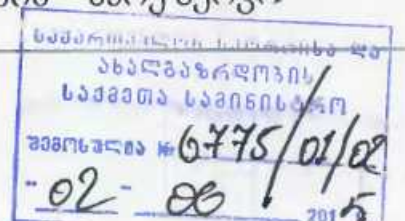 საქართველოს სპორტისა და
ახალგაზრდობის
საქმეთა სამინისტრო
შემოსულია № 6775/01/02
"02" 06 2015